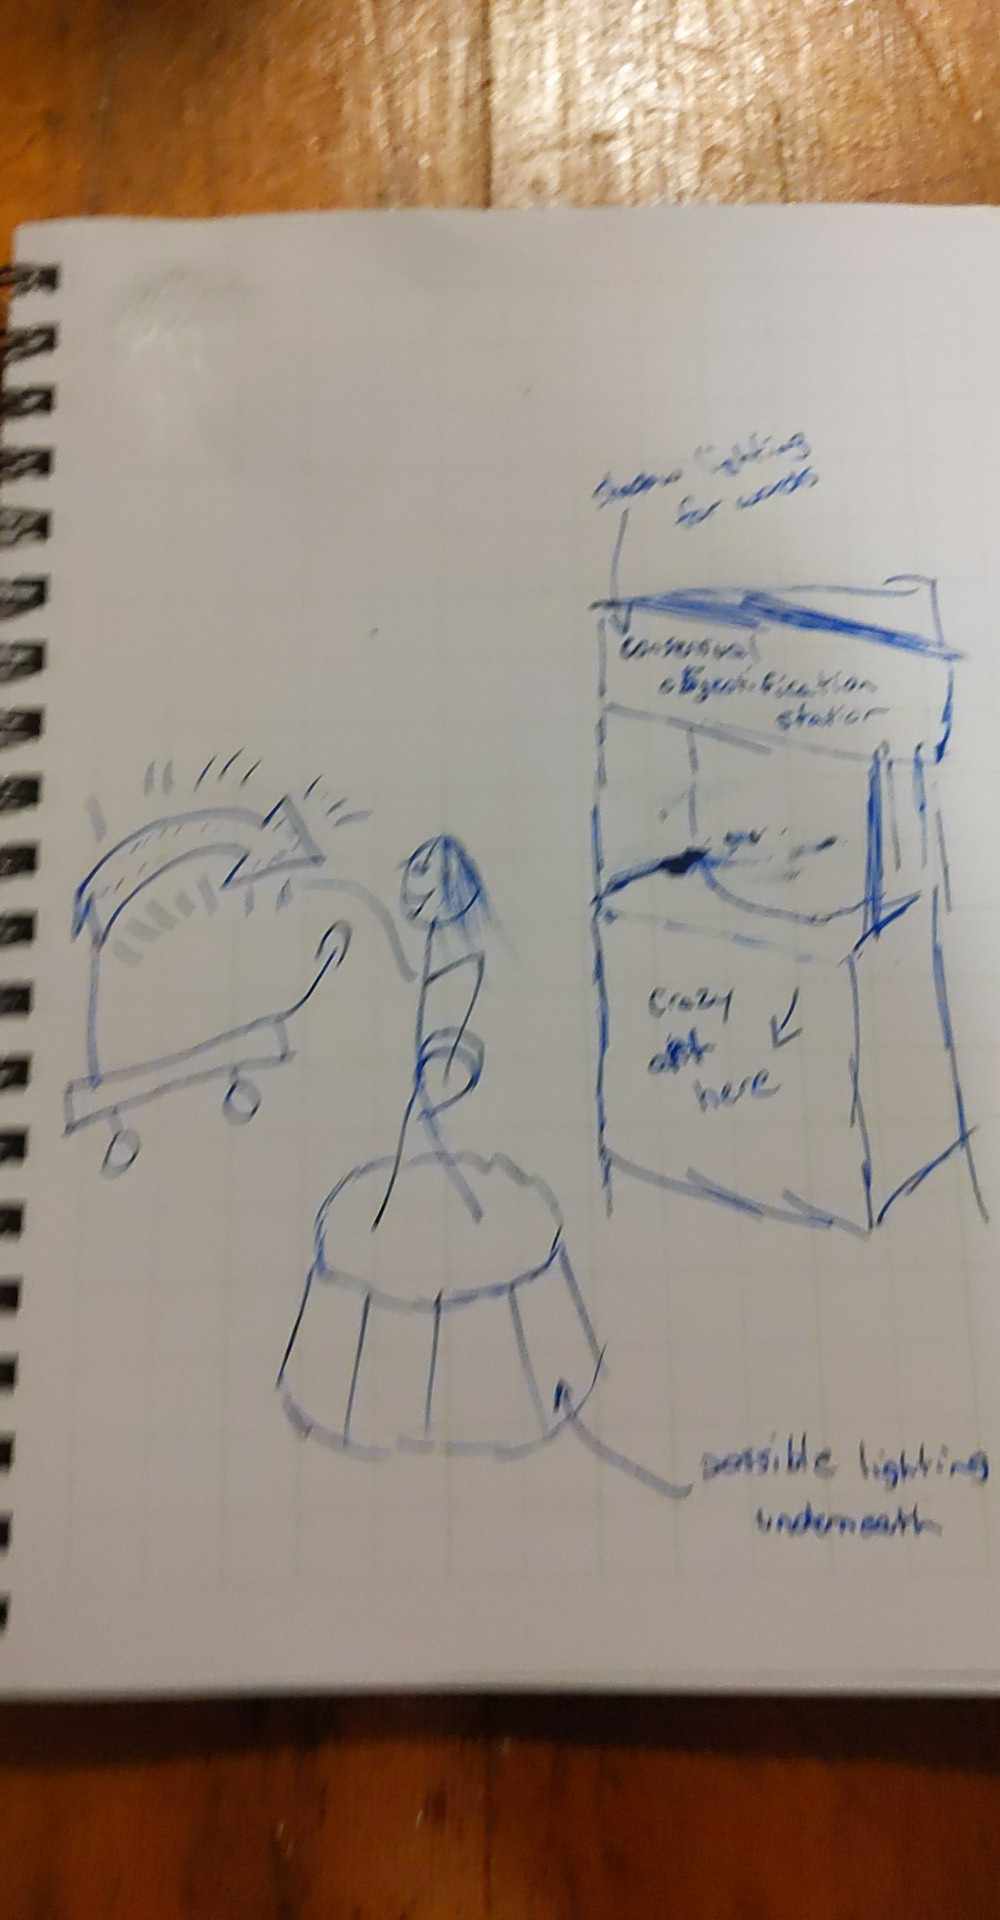 lighting
for words
consensual
objectification
station
crazy
art
here
possible lighting
underneath